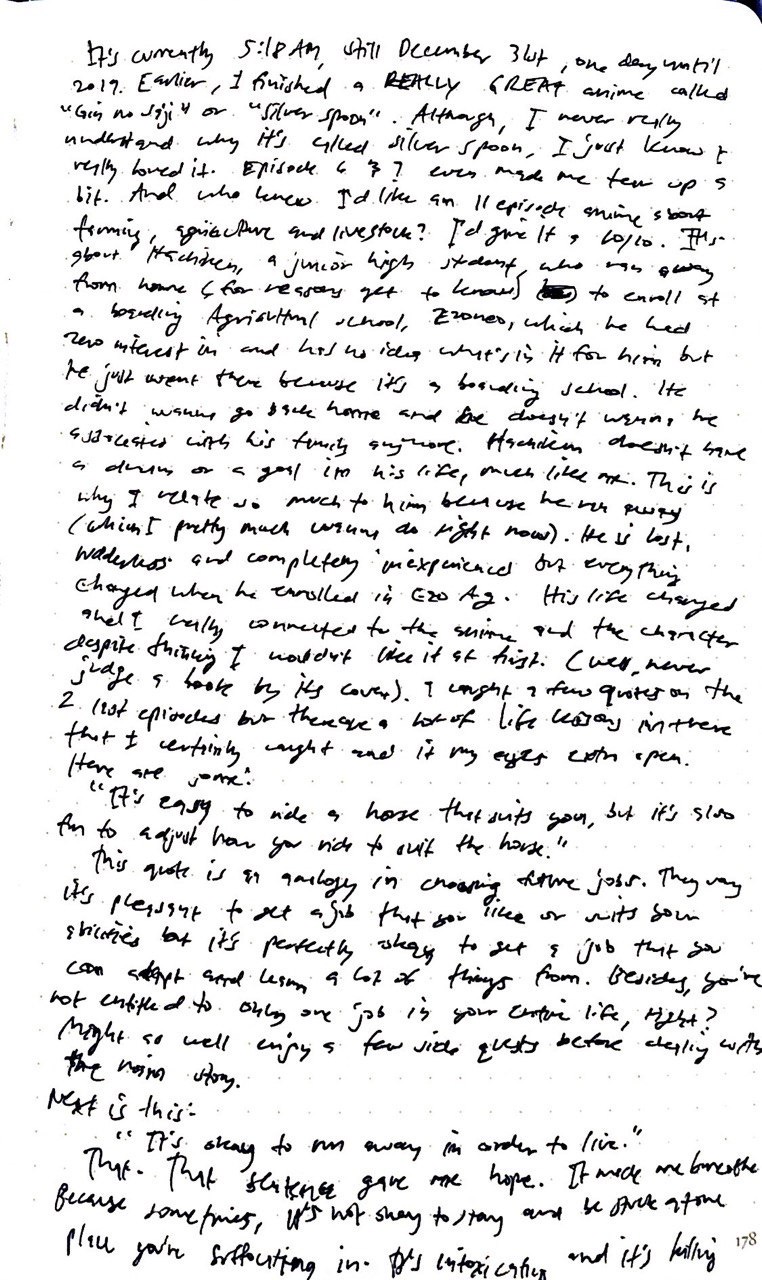 It's currently 5:18 AM, still December 31st, one day until
2019. Earlier, I finished a REALLY GREAT anime called
"Gin no Saji" or "Silver spoon". Although, I never really
understand why it's called silver spoon, I just know I
really loved it. Episode 6 & 7 even made me tear up a
bit. And who knew I'd like an 11 episode anime about
farming, agriculture and livestock? I'd give it a 10/10. It's
about Hachiken, a junior high student, who ran away
from home (for reasons get to know) to enroll at
a boarding Agricultural school, Ezonoo, which he had
zero interest in and has no idea what's in it for him but
he just went there because it's a boarding school. He
didn't wanna go back home and he doesn't wanna be
associated with his family anymore. Hachiken doesn't have
a dream or a goal in his life, much like me. This is
why I relate so much to him because he ran away
(which I pretty much wanna do right now). He is lost,
and completely inexperienced but everything
changed when he enrolled in Ezo Ag. His life changed
and I really connected to the anime and the character
despite thinking I wouldn't like it at first. (well, never
judge a book by its cover). I caught a few quotes on the
2 last episodes but there are a lot of life lessons in there
that I certainly caught and it my eyes open.
Here are some:
"It's easy to ride a horse that suits you, but it's also
fun to adjust how you ride to suit the horse."
This quote is an analogy in choosing future jobs. They say
it's pleasant to get a job that you like or suits your
abilities but it's perfectly okay to get a job that you
can adapt and learn a lot of things from. Besides, you're
not entitled to only one job in your entire life, right?
Might as well enjoy a few side quests before dealing with
the main story.
Next is this:
"It's okay to run away in order to live."
That. That sentence gave me hope. It made me breathe
Because sometimes, it's not okay to stay and be stuck at one
place you're suffocating in. It's intoxicating and it's killing
178